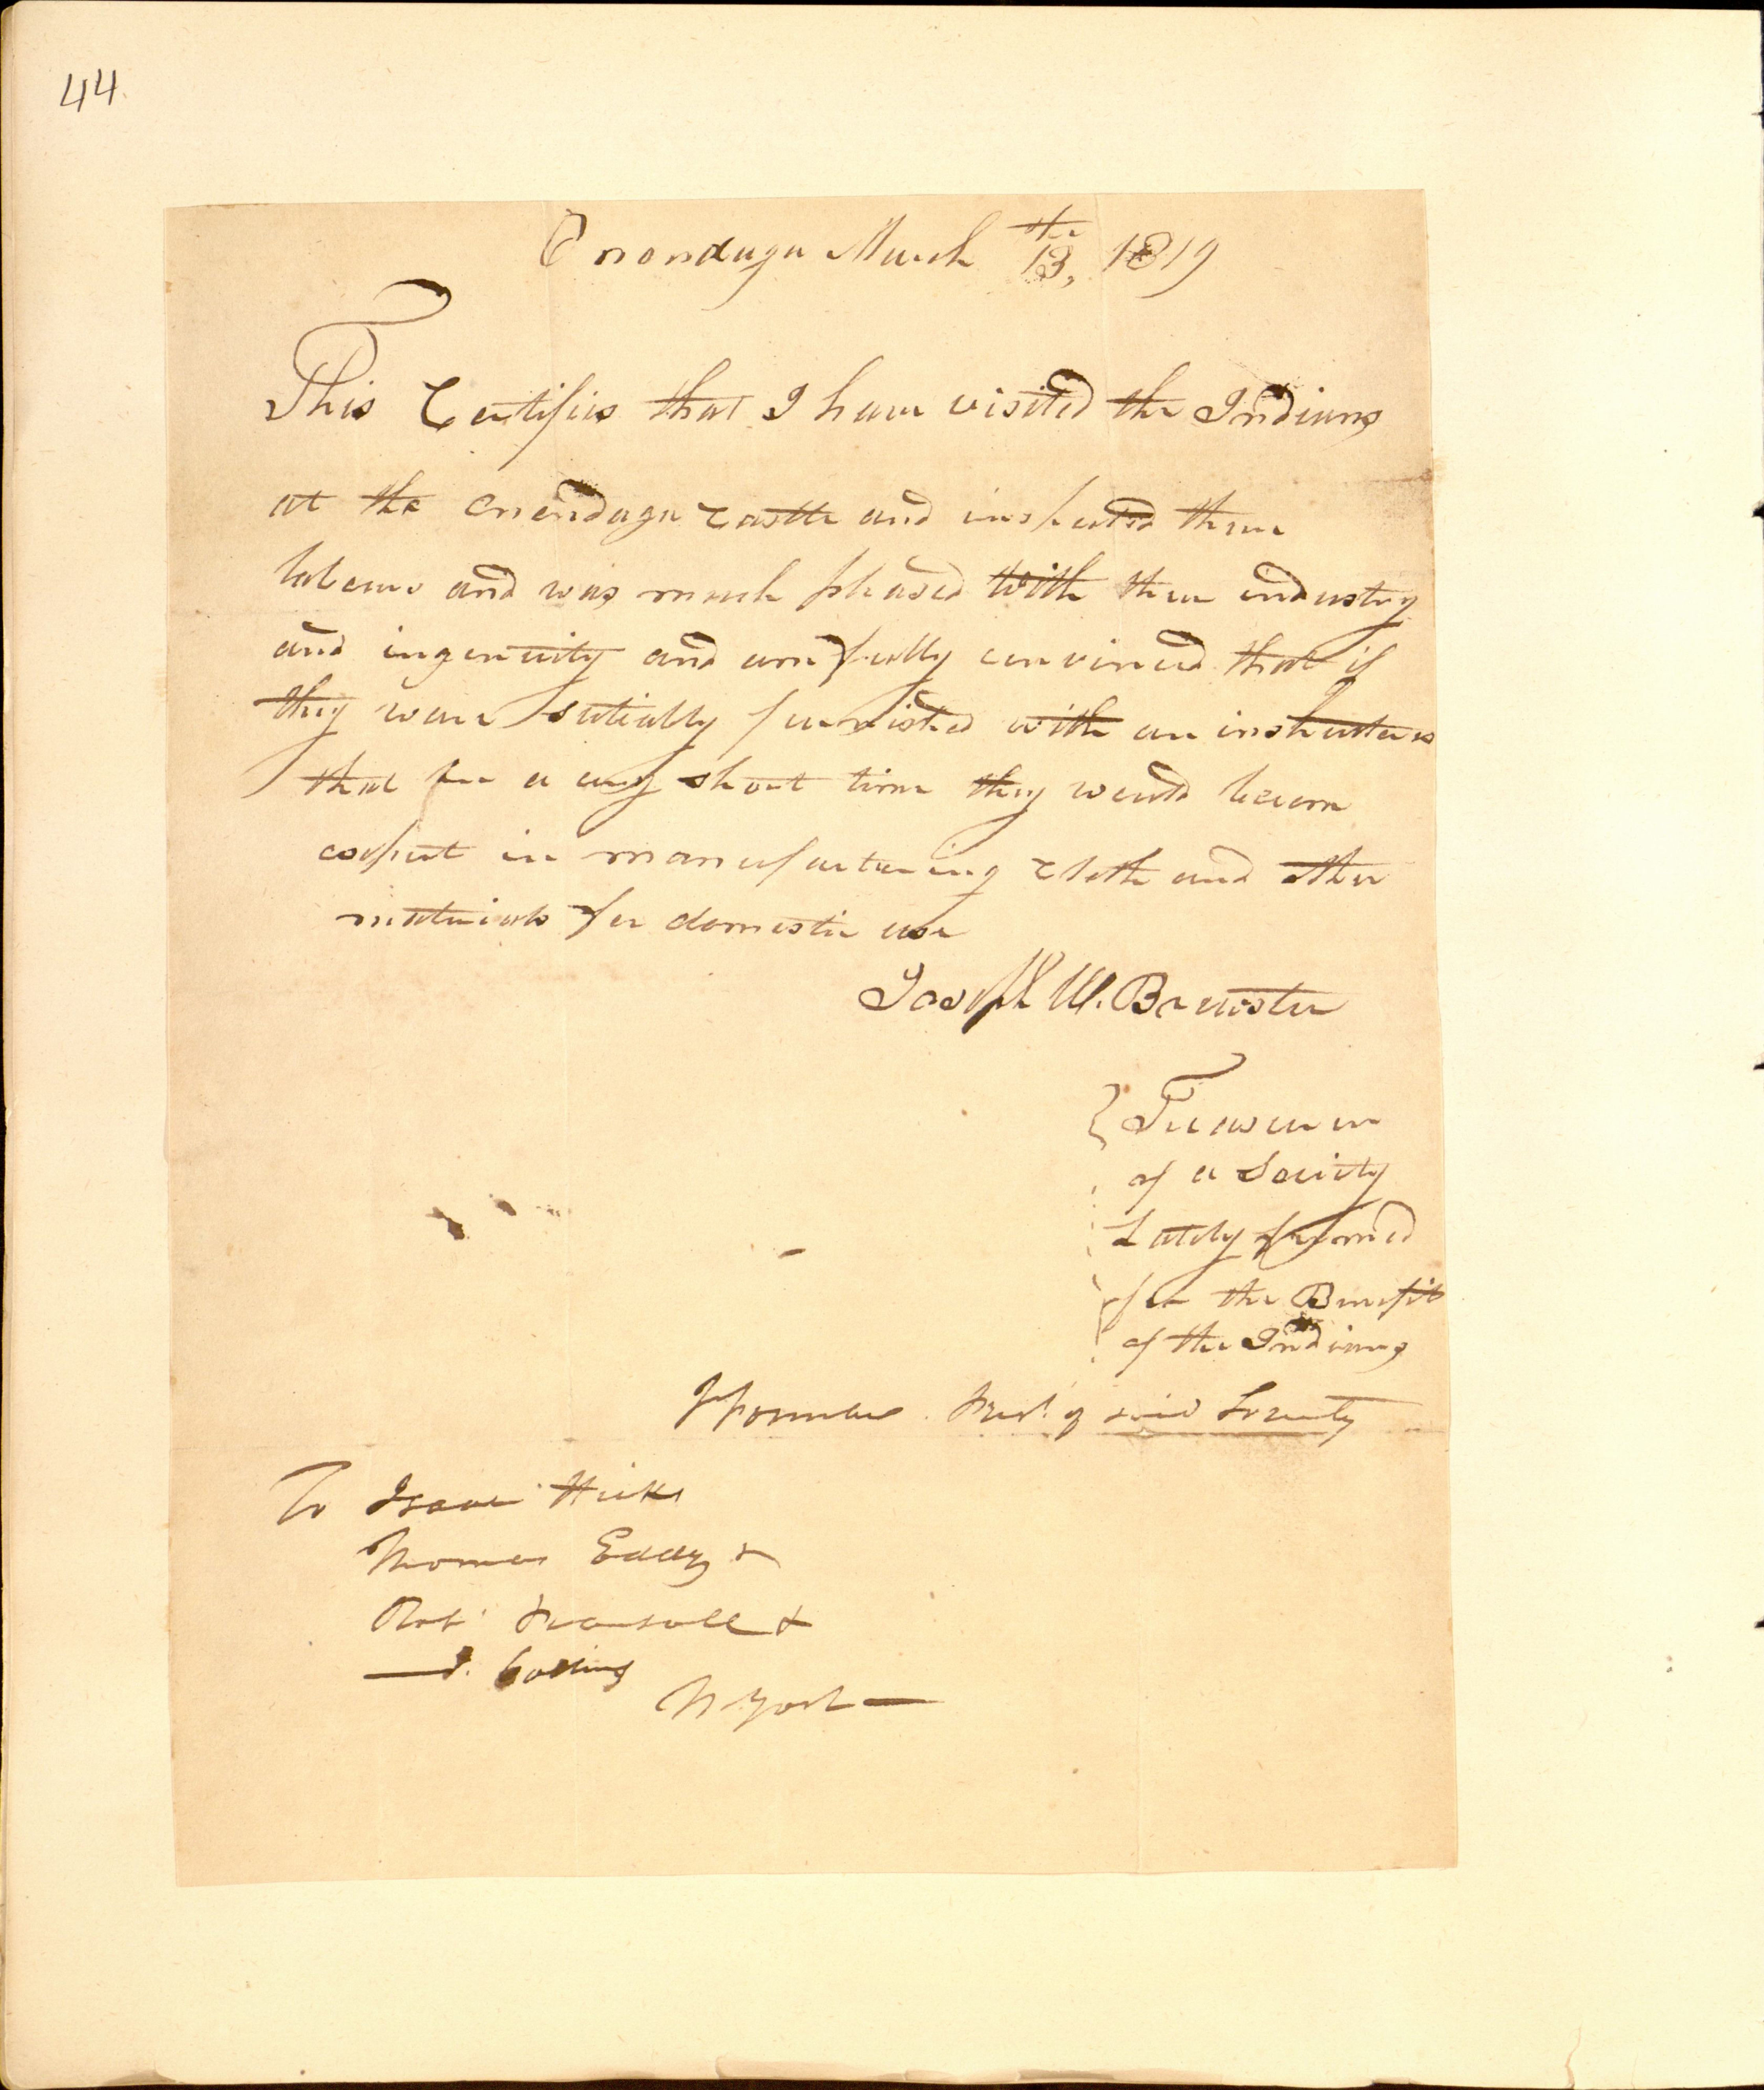 44
Onondaga March 13th, 1819
This Certifies that I have visited the Indians
at the onendaga castle and inspected there
labours and was much pleased with their industry
and ingenuity and am fully convinced that if
they ware sutiably furnished with an instructer
that in a very short time they would becom
expert in manufacturing cloth and other
materials for domestic use
Joseph W. Brewster
Treasurer
of a Society
Lately formed
for the Benefit
of the Indians
J Forman Prest. of said Society
To Isaac Hicks
Thomas Eddy &
Rob. Pearsall &
Collins
N York